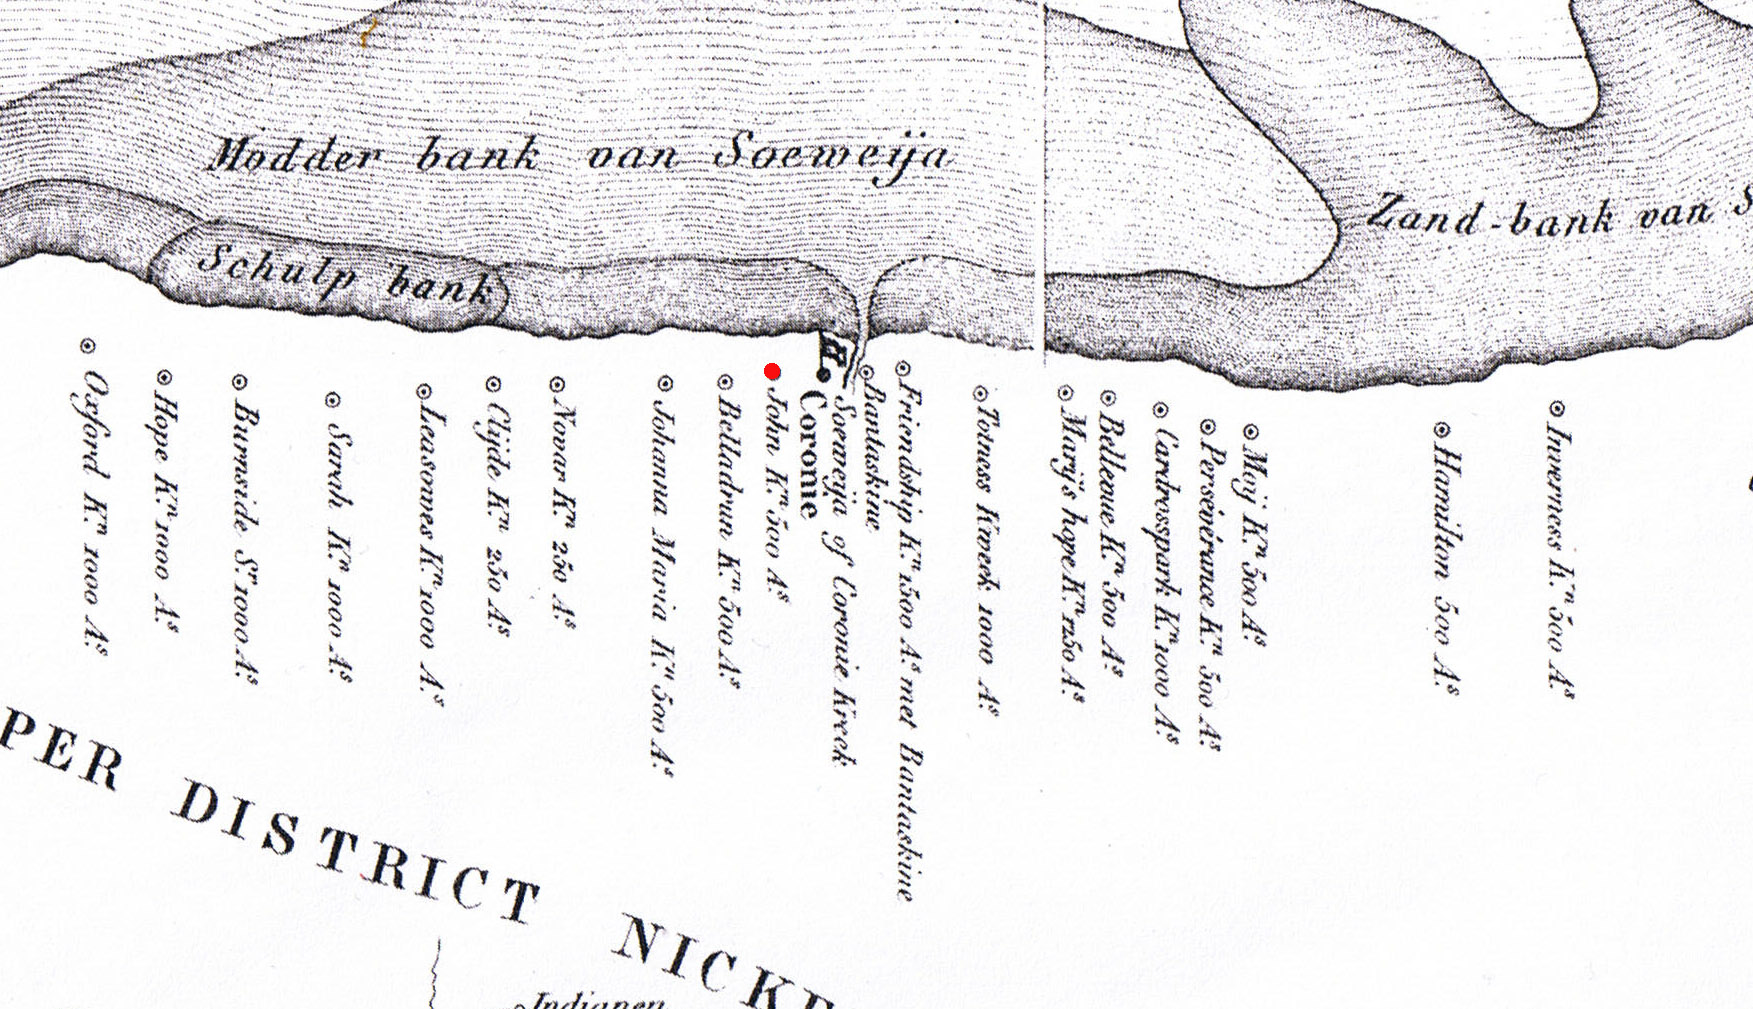 Modder bank van Soeweija
Zand-bank van S
Schulp bank
Oxford Kn. 1000 A.s
Hope Kn. 1000 A.s
Burnside Sr. 1000 A.s
Sarah Kn. 1000 A.s
Leasowes Kn. 1000 A.s
Clijde Kn. 250 A.s
Novar Kn. 250 A.s
Johanna Maria Kn. 500 A.s
Belladrum Kn. 500 A.s
John Kn. 500 A.s
Coronie
Soeweija of Coronie Kreek
Bantaskine
Friendship Kn. 1500 A.s met Bantaskine
Totness Kweek 1000 A.s
Marij's hope Kn. 1250 A.s
Bellevue Kn. 500 A.s
Cardrosspark Kn. 1000 A.s
Persévérance Kn. 500 A.s
Moij Kn. 500 A.s
Hamilton 500 A.s
Inverness Kn. 500 A.s
PER DISTRICT NICKE
Indianen